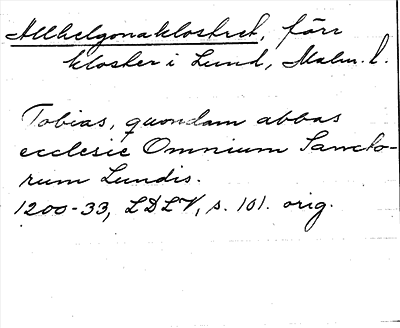 Allhelgonaklostret, förr
kloster i Lund, Malm. l.
Tobias, quondam abbas
ecclesie Omnium Sancto-
rum Lundis.
1200-33, LDLV, s. 101. orig.